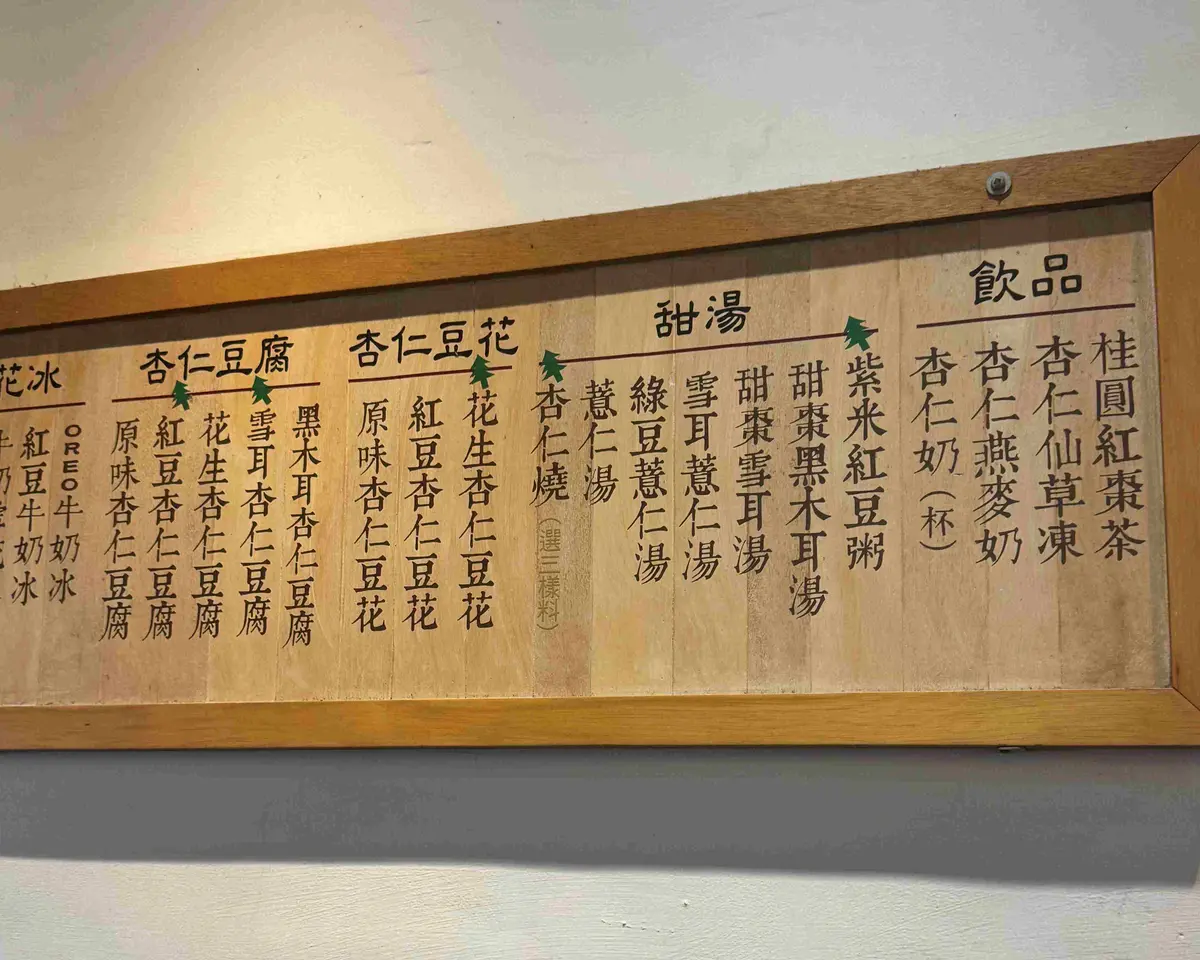 飲品
桂圓紅棗茶
杏仁仙草凍
杏仁燕麥奶
杏仁奶(杯)
甜湯
紫米紅豆粥
甜棗黑木耳湯
甜棗雪耳湯
雪耳薏仁湯
綠豆薏仁湯
薏仁湯
杏仁燒(選三樣料)
杏仁豆花
花生杏仁豆花
紅豆杏仁豆花
原味杏仁豆花
杏仁豆腐
黑木耳杏仁豆腐
雪耳杏仁豆腐
花生杏仁豆腐
紅豆杏仁豆腐
原味杏仁豆腐
花冰
OREO牛奶冰
紅豆牛奶冰